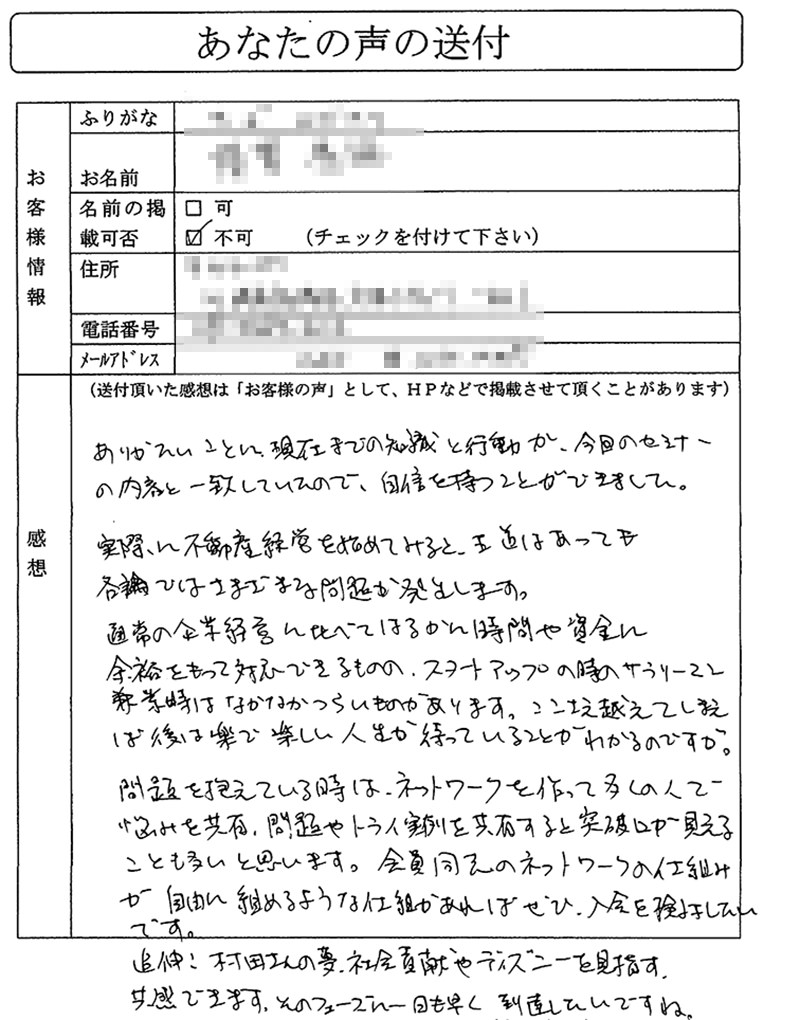 あなたの声の送付
お客様情報
ふりがな
お名前
名前の掲載可否
□ 可
☑ 不可 (チェックを付けて下さい)
住所
電話番号
メールアドレス
感想
(送付頂いた感想は「お客様の声」として、HPなどで掲載させて頂くことがあります)
ありがたいことに、現在までの知識と行動が、今回のセミナー
の内容と一致していたので、自信を持つことができました。
実際に不動産経営を始めてみると、王道はあっても
各論ではさまざまな問題が発生します。
通常の企業経営に比べてはるかに時間や資金に
余裕をもって対応できるものの、スタートアップの時のサラリーマン
兼業時はなかなかつらいものがあります。ここさえ越えてしまえ
ば後は楽で楽しい人生が待っていることがわかるのですが。
問題を抱えている時は、ネットワークを作って多くの人で
悩みを共有、問題やトライ実例を共有すると突破口が見える
ことも多いと思います。会員同志のネットワークの仕組み
が自由に組めるような仕組があればぜひ、入会を検討したい
です。
追伸：村田さんの夢、社会貢献やディズニーを目指す、
共感できます。そのフェーズに一日も早く到達したいですね。